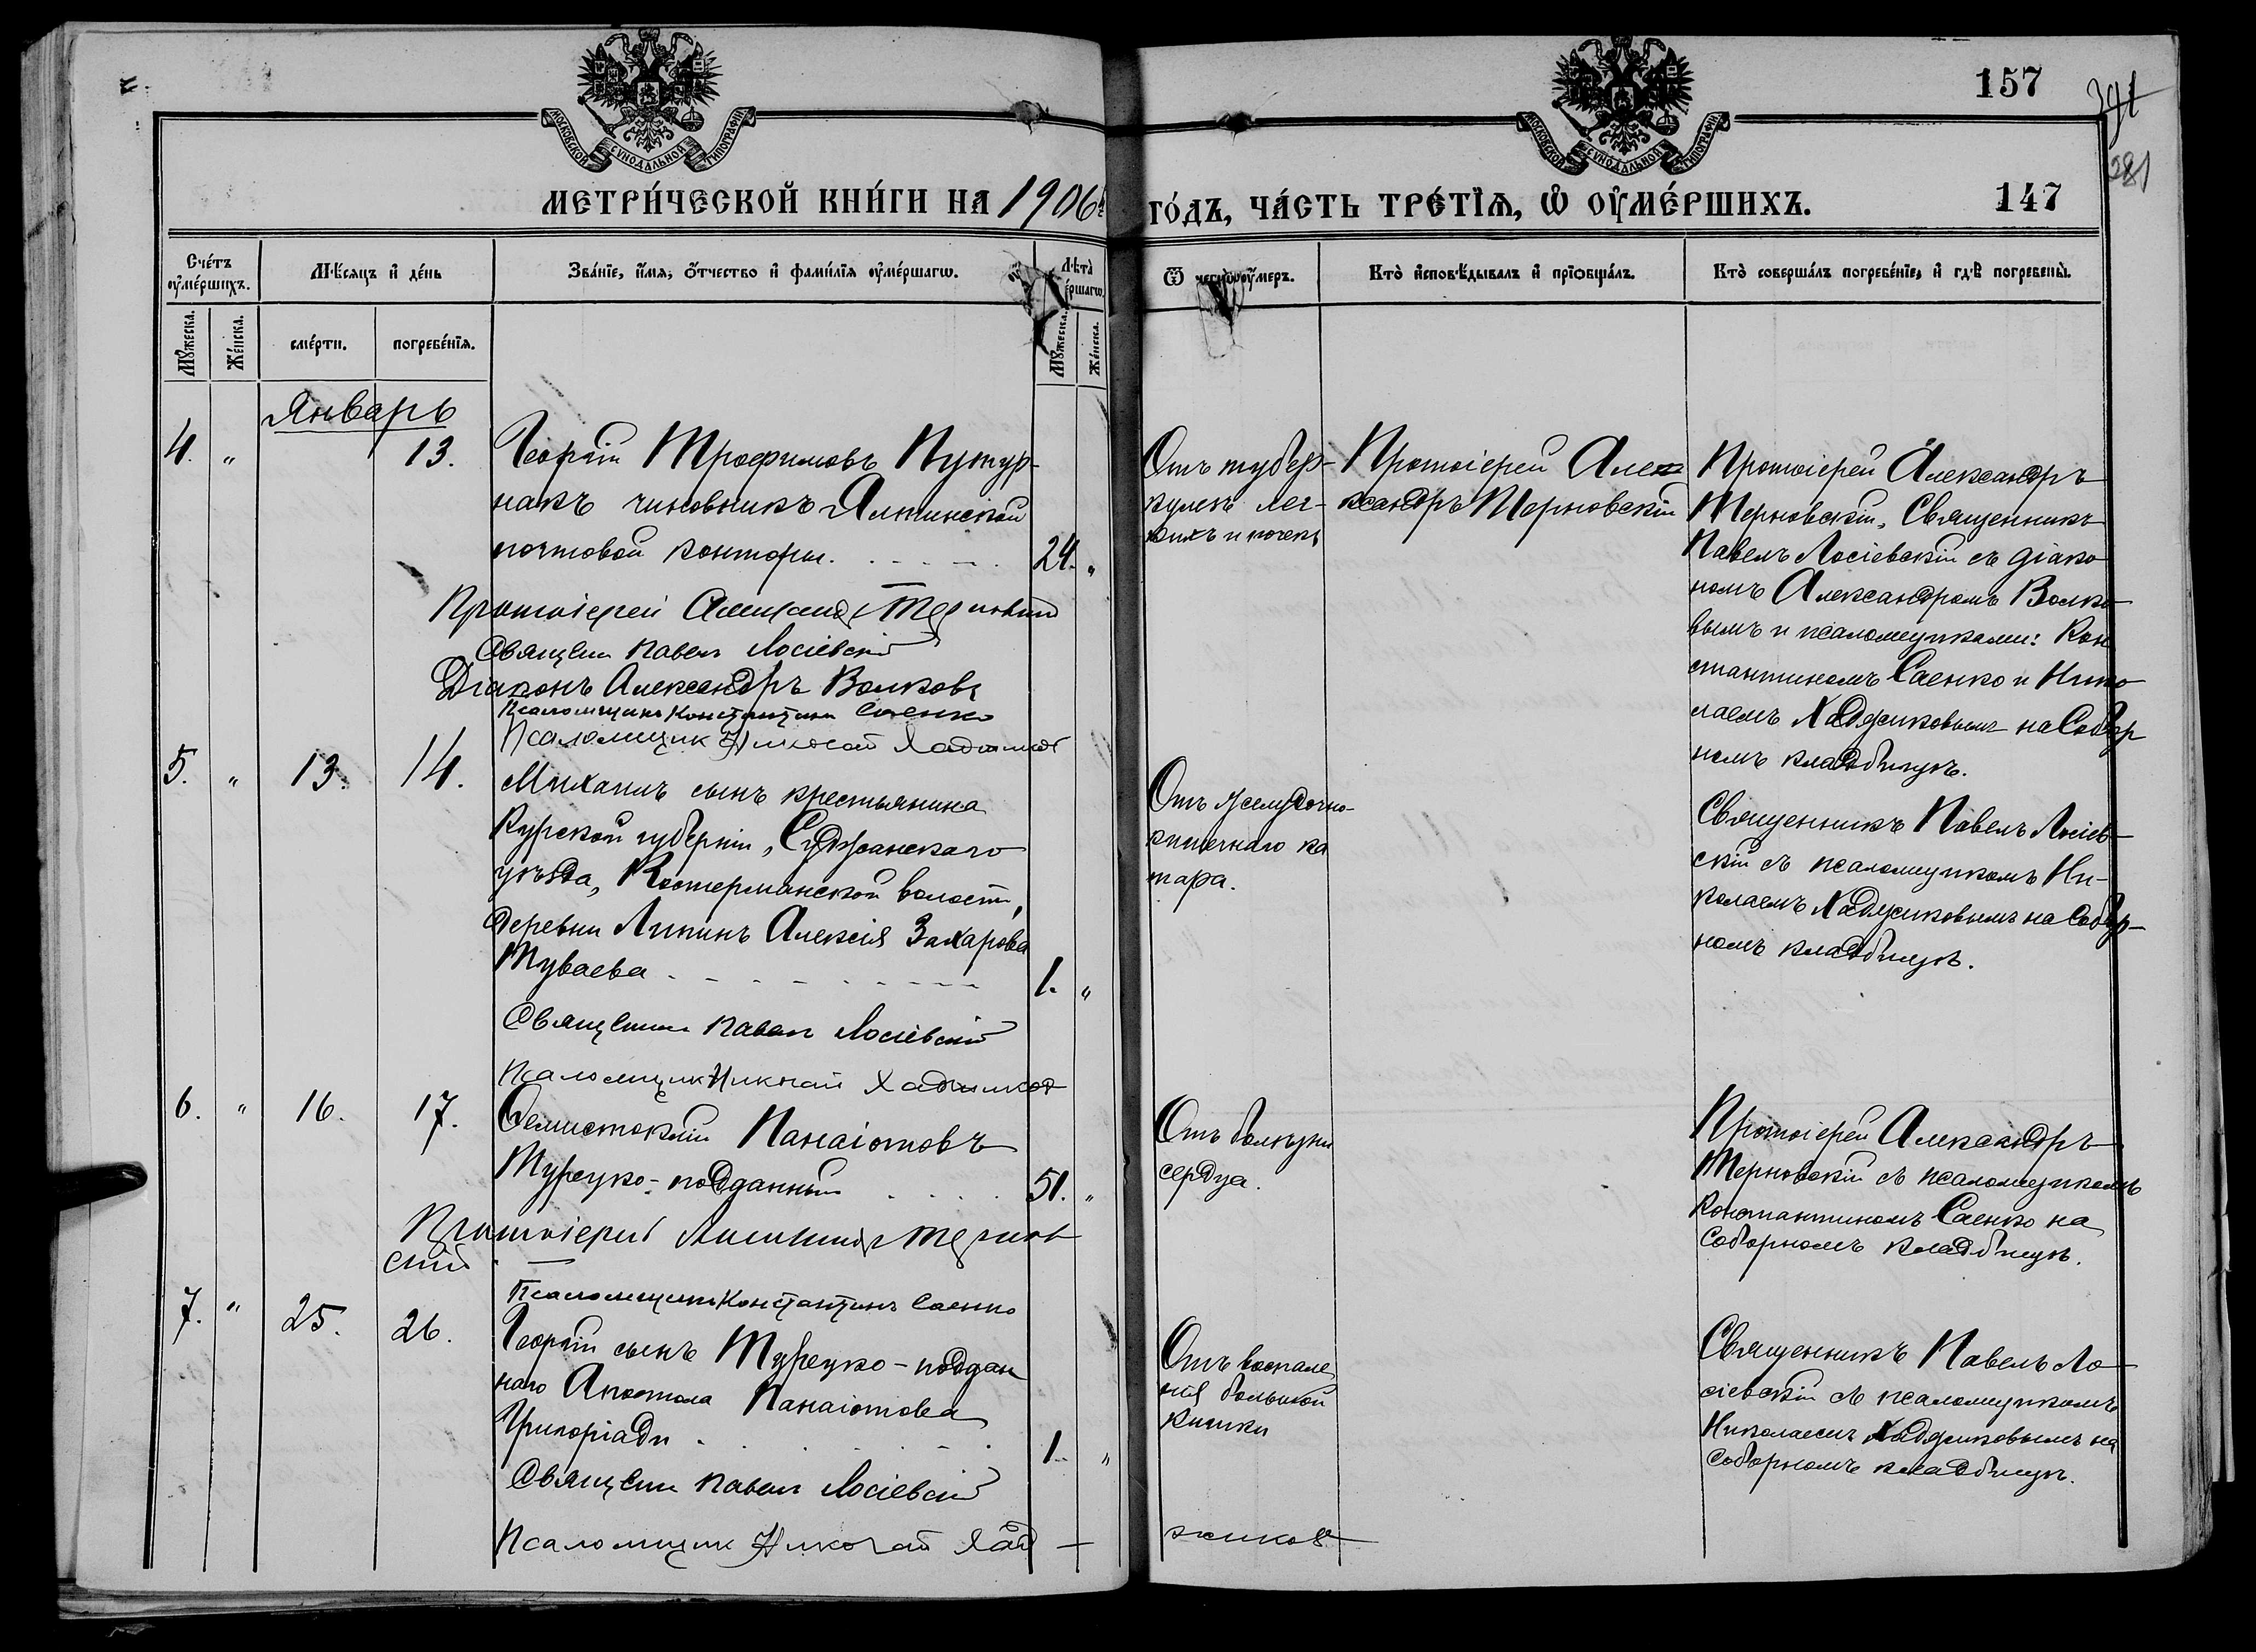 157
341
281
МОСКОВСКОЙ СѴНОДАЛЬНОЙ ТИПОГРАФІИ
МОСКОВСКОЙ СѴНОДАЛЬНОЙ ТИПОГРАФІИ
МЕТРИ́ЧЕСКОЙ КНИ́ГИ НА 1906 ГО́ДЪ, ЧА́СТЬ ТРЕ́ТІѦ, Ѡ҆ ОУ҆МЕ́РШИХЪ.
147
Сче́тъ оу҆ме́ршихъ.
Мѣ́сяцъ и҆ де́нь
Зва́нїе, и҆́мя, ѻ҆́тчество и҆ фами́лїя оу҆ме́ршагѡ.
Лѣта̀ оу҆ме́ршагѡ.
Ѿ чегѡ̀ оу҆́меръ.
Кто̀ и҆сповѣ́дывалъ и҆ прїѡбща́лъ.
Кто̀ соверша́лъ погребе́нїе, и҆ гдѣ̀ погребены̀.
Му́жеска.
Же́нска.
сме́рти.
погребе́нїя.
Му́жеска.
Же́нска.
Январь
4. " 13.
Георгій Трофимовъ Путур-
накъ чиновникъ Ялтинской
почтовой конторы. 24. "
Отъ тубер-
кулеза лег-
кихъ и почекъ
Протоіерей Алек
ксандръ Терновскій
Протоіерей Александръ
Терновскій, Священникъ
Павелъ Лосіевскій съ діако
номъ Александромъ Волко
вымъ и псаломщиками: Кон
стантиномъ Саенко и Нико
лаемъ Хаджиковымъ на Собор
номъ кладбищѣ.
Протоіерей Александръ Терновскій
Священ Павелъ Лосіевскій
Діаконъ Александръ Волковъ
Псаломщикъ Константинъ Саенко
Псаломщик Николай Хаджиков
5. " 13. 14.
Михаилъ сынъ крестьянина
Курской губерніи, Суджанскаго
уѣзда, Костерманской волости,
деревни Липинъ Алексія Захарова
Туваева 1. "
Отъ желудочно-
кишечнаго ка
тара.
Священникъ Павелъ Лосіев-
скій съ псаломщикомъ Ни-
колаемъ Хаджиковымъ на Собор-
номъ кладбищѣ.
Священник Павел Лосіевскій
Псаломщик Николай Хаджиков
6. " 16. 17.
Ѳемистоклій Панаіотовъ
Турецко-подданный 51. "
Отъ болѣзни
сердца.
Протоіерей Александръ
Терновскій съ псаломщикомъ
Константиномъ Саенко на
Соборномъ кладбищѣ.
Протоіерей Александръ Тернов
скій
Псаломщикъ Константинъ Саенко
7. " 25. 26.
Георгій сынъ Турецко-поддан
наго Апостола Панаіотова
Григоріади 1. "
Отъ воспале
нія большой
кишки
Священникъ Павелъ Ло-
сіевскій съ псаломщикомъ
Николаемъ Хаджиковымъ на
Соборномъ кладбищѣ.
Священ Павел Лосіевскій
Псаломщик Николай Хад-
жиков